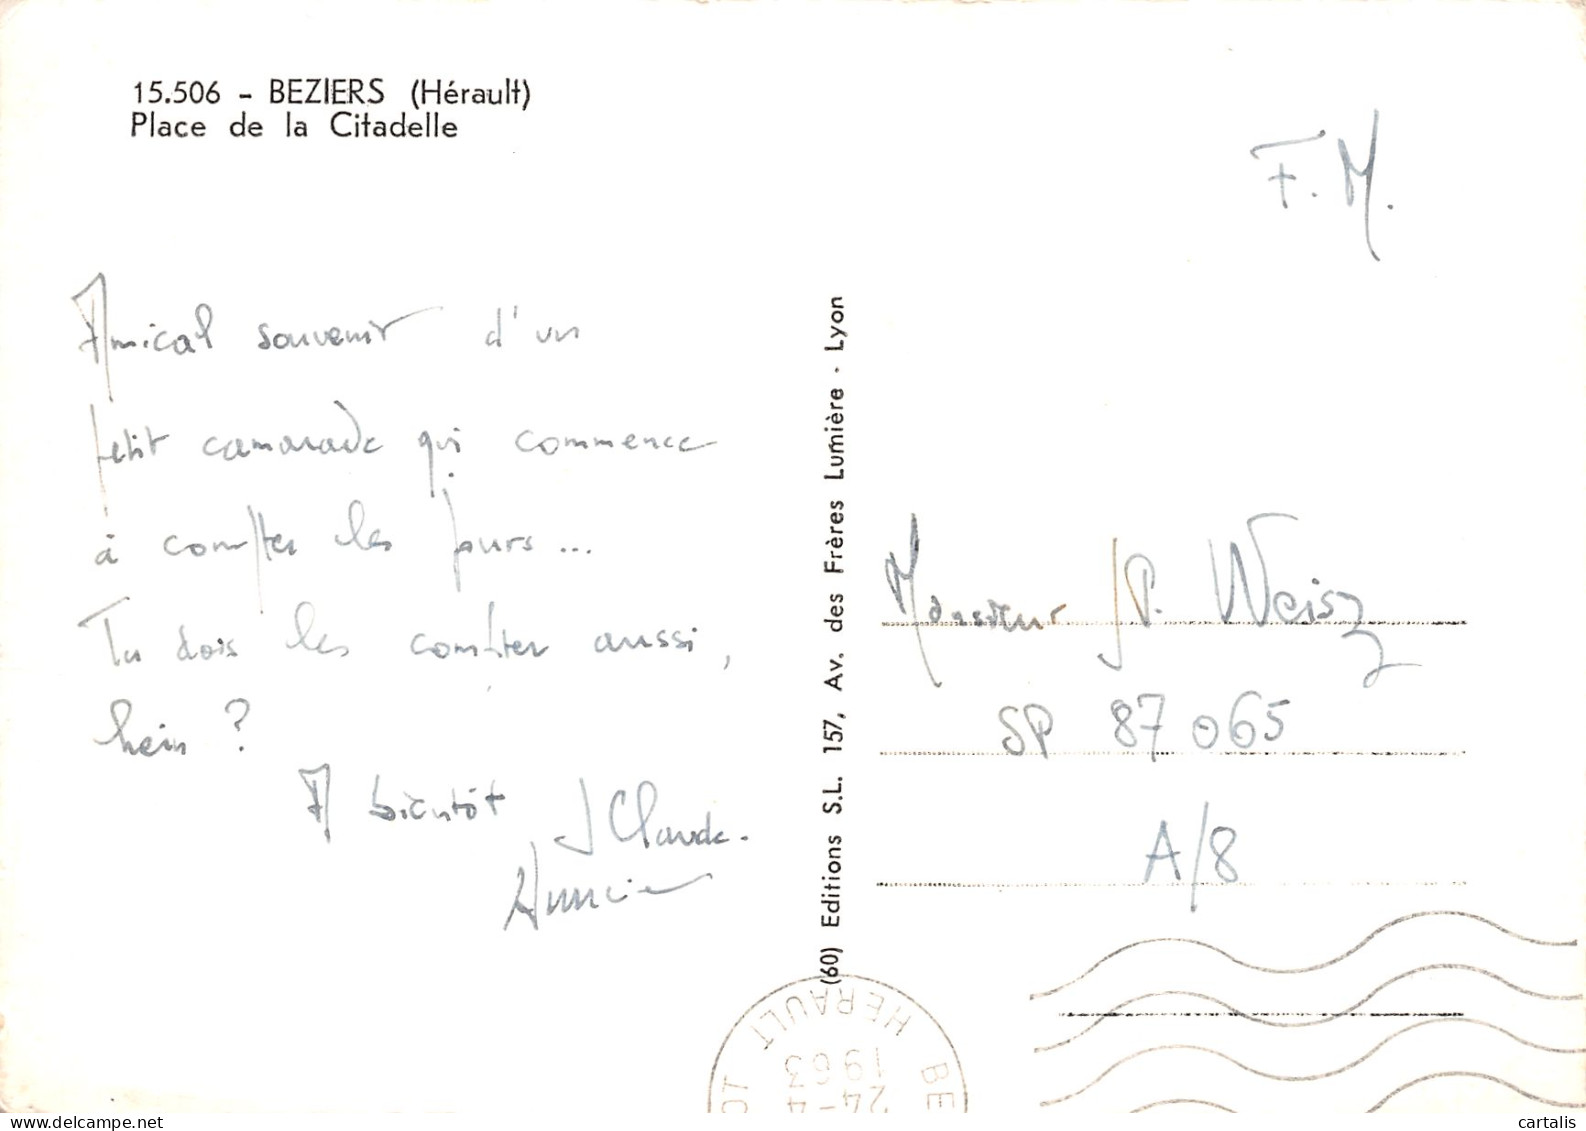 15.506 - BEZIERS (Hérault)
Place de la Citadelle
F.M.
Amical souvenir d'un
petit camarade qui commence
à compter les jours...
Tu dois les compter aussi,
hein ?
A bientôt J Claude.
(60) Editions S.L. 157, Av. des Frères Lumière - Lyon
Monsieur JP. Weisz
SP 87 065
A/8
BE
HERAULT
24-4
1963
delcampe.net
cartalis